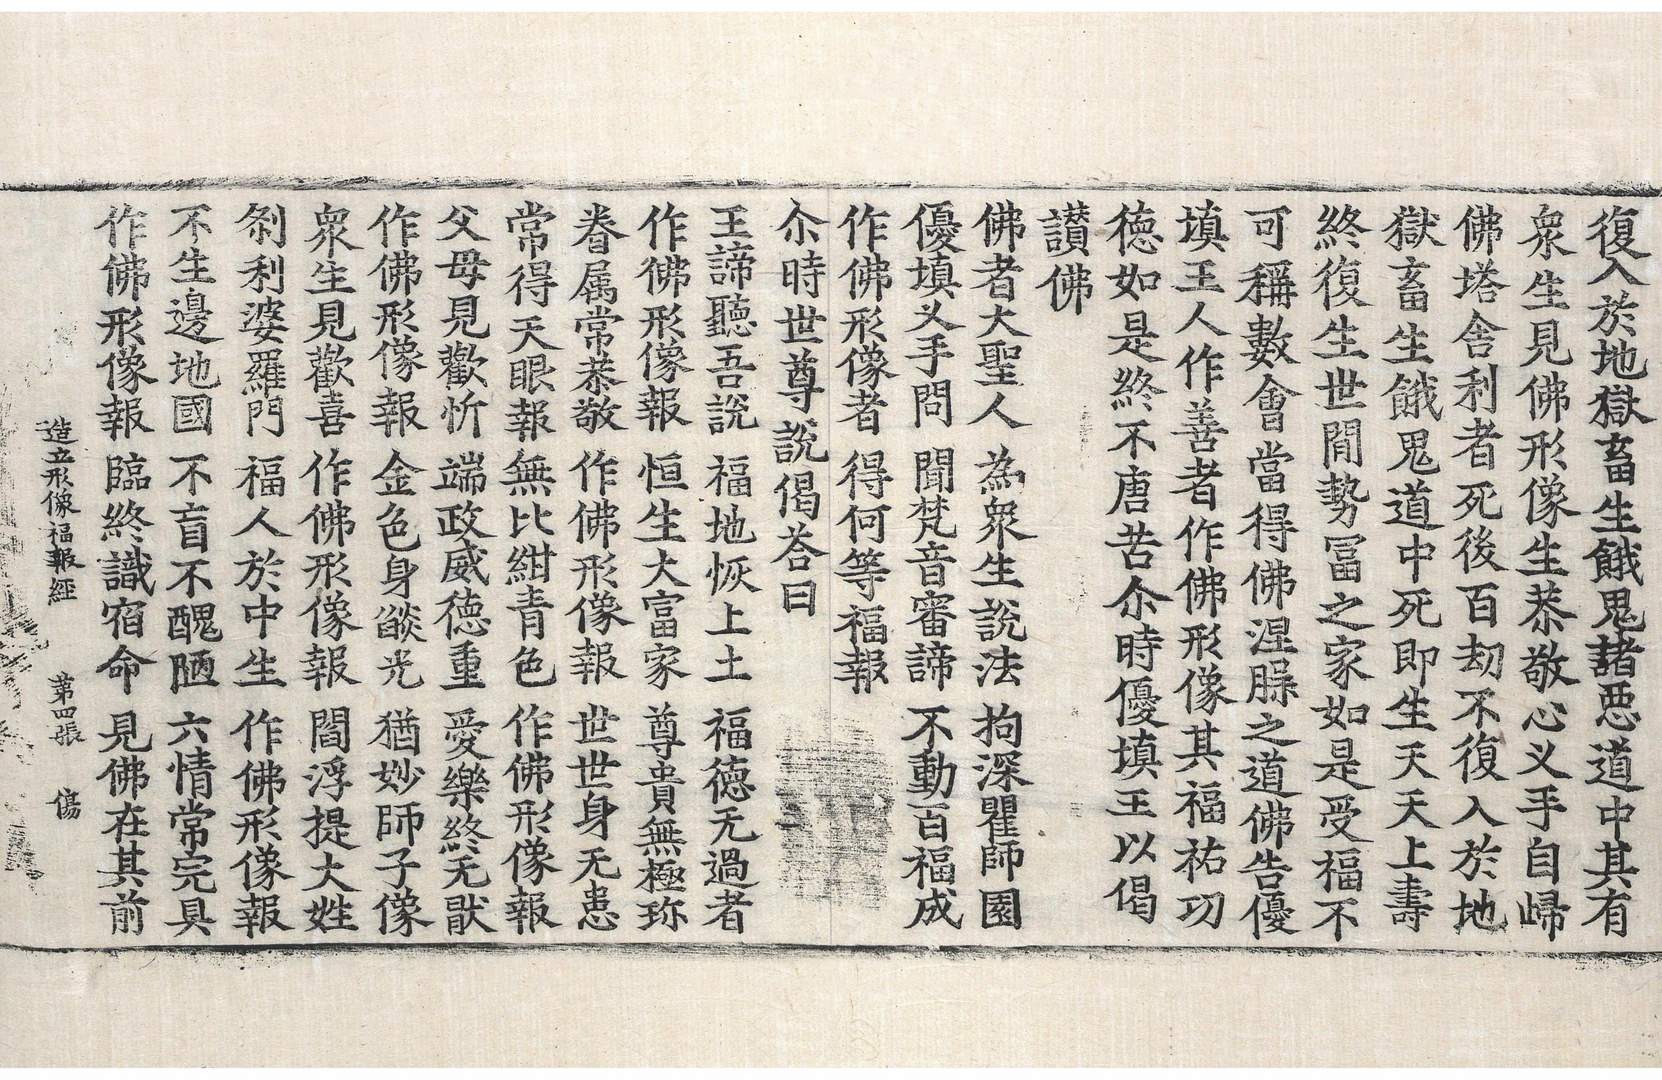 復入於地獄畜生餓鬼諸惡道中其有
衆生見佛形像生恭敬心叉手自歸
佛塔舍利者死後百劫不復入於地
獄畜生餓鬼道中死即生天天上壽
終復生世間勢冨之家如是受福不
可稱數會當得佛涅槃之道佛告優
填王人作善者作佛形像其福祐㓛
德如是終不唐苦尒時優填王以偈
讃佛
佛者大聖人 為衆生說法 拘深瞿師園
優填叉手問 聞梵音審諦 不動百福成
作佛形像者 得何等福報
尒時世尊說偈荅曰
王諦聽吾說 福地恢上土 福德无過者
作佛形像報 恒生大富家 尊貴無極珎
眷属常恭敬 作佛形像報 世世身无患
常得天眼報 無比紺青色 作佛形像報
父母見歡忻 端政威德重 愛樂終无猒
作佛形像報 金色身㷿光 猶妙師子像
衆生見歡喜 作佛形像報 閻浮提大姓
刹利婆羅門 福人於中生 作佛形像報
不生邊地國 不盲不醜陋 六情常完具
作佛形像報 臨終識宿命 見佛在其前
造立形像福報經 第四張 傷